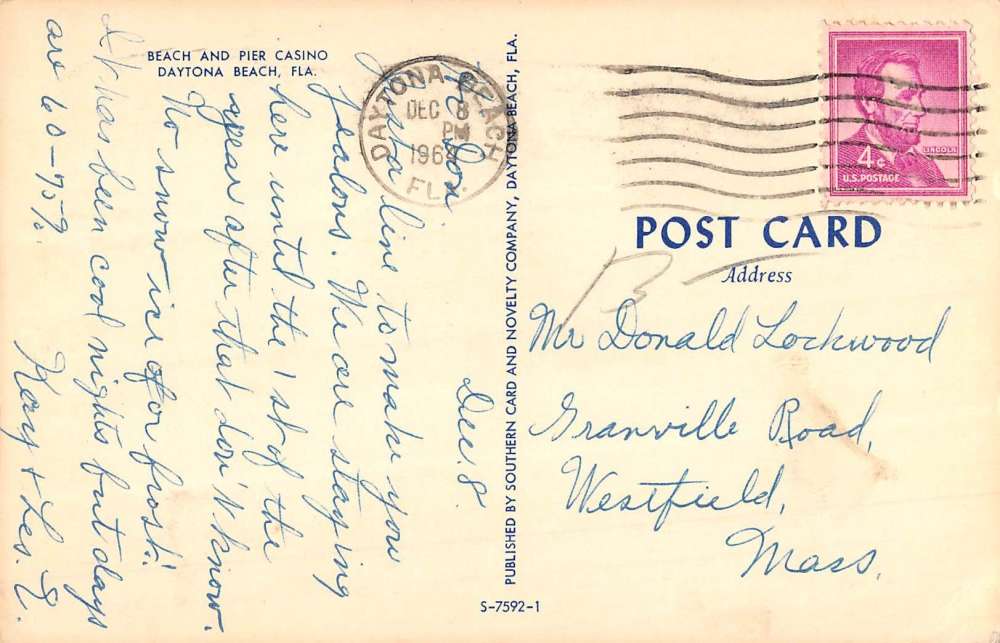 BEACH AND PIER CASINO
DAYTONA BEACH, FLA.
Dec. 8
Don
Just a line to make you
jealous. We are staying
here until the 1st of the
year after that don't know.
No snow ice or frost!
It has been cool nights but days
are 60-75°.
Kay + Les. E.
PUBLISHED BY SOUTHERN CARD AND NOVELTY COMPANY, DAYTONA BEACH, FLA.
S-7592-1
DAYTONA BEACH
DEC 8
PM
FLA.
LINCOLN
4¢
U.S. POSTAGE
POST CARD
Address
Mr Donald Lockwood
Granville Road,
Westfield,
Mass.